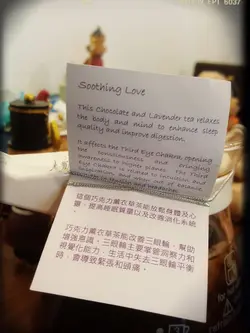 Soothing Love
This Chocolate and Lavender tea relaxes
the body and mind to enhance sleep
quality and improve digestion.
It affects the Third Eye Chakra, opening
the consciousness and bringing
awareness to higher planes. The Third
Eye Chakra is related to
and
這個巧克力薰衣草茶能放鬆身體及心
靈，提高睡眠質量以及改進消化系統
。
巧克力薰衣草茶能改善三眼輪，幫助
增強意識。三眼輪主要掌管洞察力和
視覺化能力，生活中失去三眼輪平衡
時，會導致緊張和頭痛。